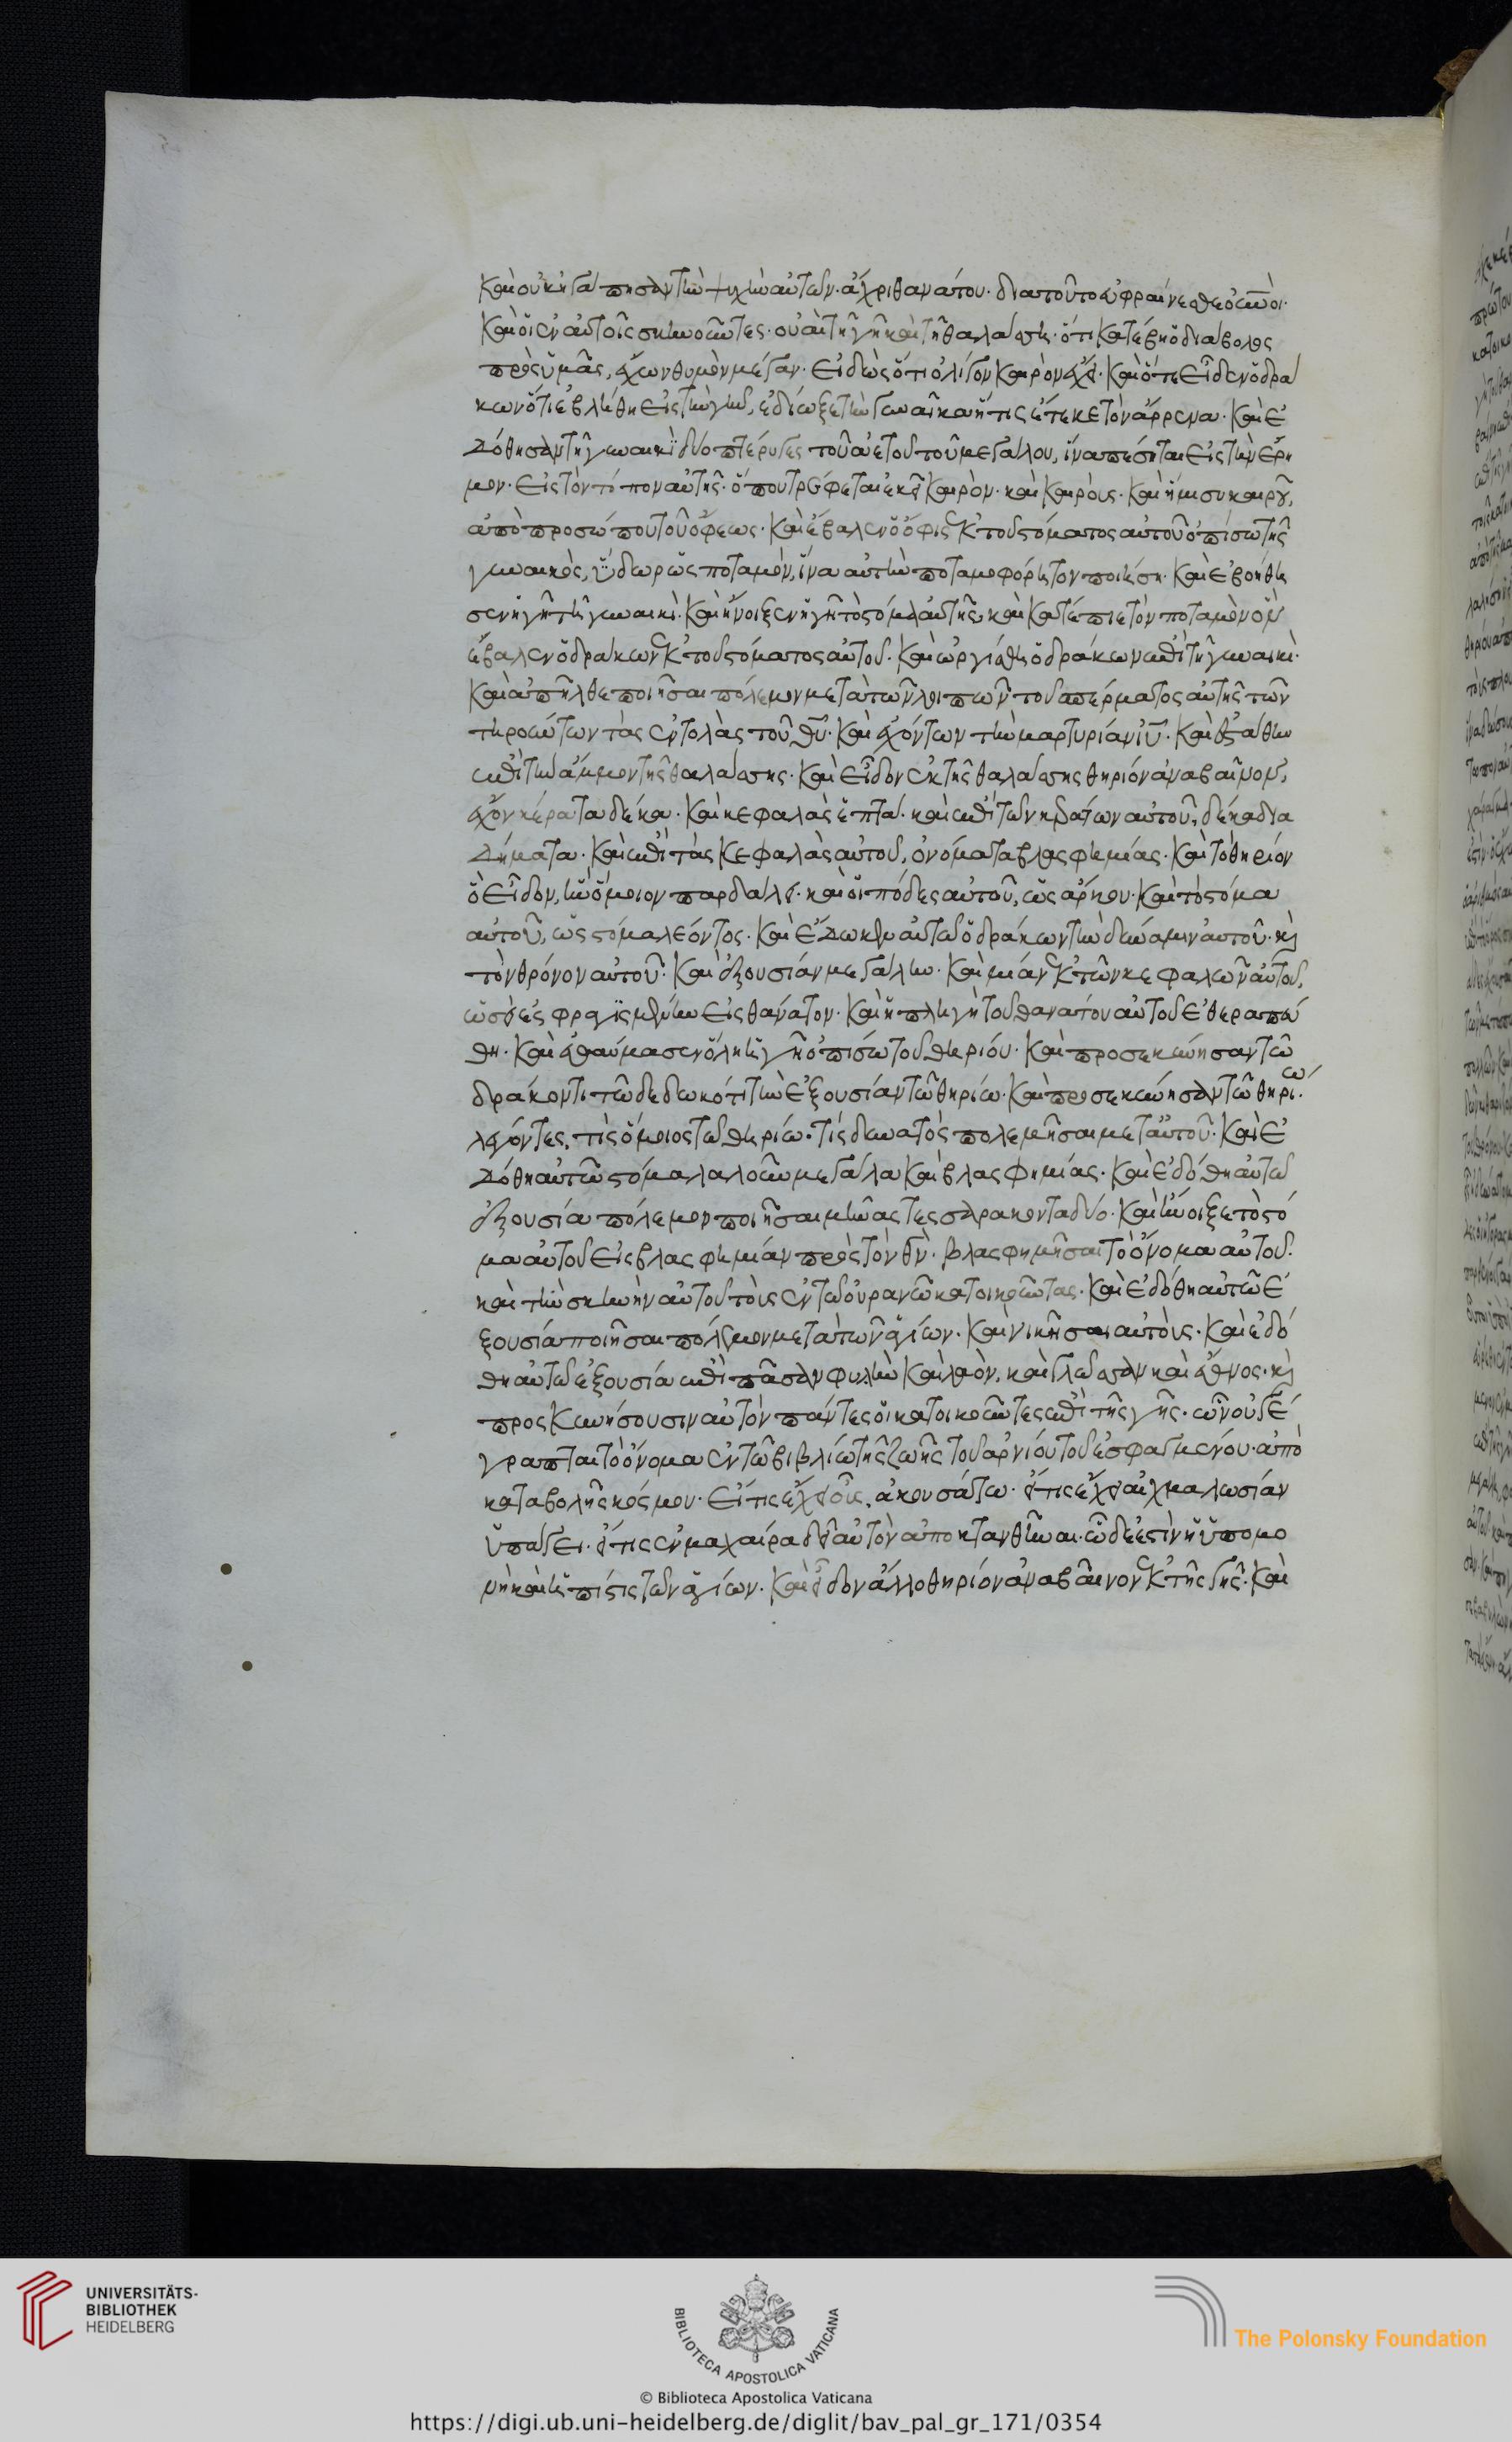 καὶ οὐκ ἠγάπησαν τὴν ψυχὴν αὐτῶν· ἄχρι θανάτου· διατοῦτο εὐφραίνεσθε οἱ οὐ(ρα)νοὶ·
καὶ οἱ ἐν αὐτοῖς σκηνοῦντες· οὐαὶ τῇ γῇ καὶ τῇ θαλάσσῃ· ὅτι κατέβη ὁ διάβολος
πρὸς ὑμᾶς, ἔχων θυμὸν μέγαν· εἰδὼς ὅτι ὀλίγον καιρὸν ἔχει· καὶ ὅτε εἶδεν ὁ δρά
κων ὅτι ἐβλήθη εἰς τὴν γῆν, ἐδίωξε τὴν γυναῖκα ἥτις ἔτεκε τὸν ἄρρενα· καὶ ἐ
δόθησαν τῇ γυναικὶ δύο πτέρυγες τοῦ ἀετοῦ τοῦ μεγάλου, ἵνα πέσηται εἰς τὴν ἔρη
μον· εἰς τὸν τόπον αὐτῆς· ὅπου τρέφεται ἐκεῖ καιρὸν· καὶ καιρούς· καὶ ἥμισυ καιροῦ,
ἀπὸ προσώπου τοῦ ὄφεως· καὶ ἔβαλεν ὁ ὄφις ἐκ τοῦ στόματος αὐτοῦ ὀπίσω τῆς
γυναικὸς, ὕδωρ ὡς ποταμὸν, ἵνα αὐτὴν ποταμοφόρητον ποιήσῃ· καὶ ἐβοήθη
σεν ἡ γῆ τῇ γυναικὶ· καὶ ἤνοιξεν ἡ γῆ τὸ στόμα αὐτῆς, καὶ κατέπιε τὸν ποταμὸν ὃν
ἔβαλεν ὁ δράκων ἐκ τοῦ στόματος αὐτοῦ· καὶ ὠργίσθη ὁ δράκων ἐπὶ τῇ γυναικὶ·
καὶ ἀπῆλθε ποιῆσαι πόλεμον μετὰ τῶν λοιπῶν τοῦ σπέρματος αὐτῆς τῶν
τηρούντων τὰς ἐντολὰς τοῦ θ̅υ̅· καὶ ἐχόντων τὴν μαρτυρίαν ι̅υ̅· καὶ ἐστάθην
ἐπὶ τὴν ἄμμον τῆς θαλάσσης· καὶ εἶδον ἐκ τῆς θαλάσσης θηρίον ἀναβαῖνον,
ἔχον κέρατα δέκα· καὶ κεφαλὰς ἑπτά· καὶ ἐπὶ τῶν κεράτων αὐτοῦ, δέκα δια
δήματα· καὶ ἐπὶ τὰς κεφαλὰς αὐτοῦ, ὀνόματα βλασφημίας· καὶ τὸ θηρίον
ὃ εἶδον, ἦν ὅμοιον παρδάλει· καὶ οἱ πόδες αὐτοῦ, ὡς ἄρκου· καὶ τὸ στόμα
αὐτοῦ, ὡς στόμα λέοντος· καὶ ἔδωκεν αὐτῷ ὁ δράκων τὴν δύναμιν αὐτοῦ· κ(αὶ)
τὸν θρόνον αὐτοῦ· καὶ ἐξουσίαν μεγάλην· καὶ μίαν ἐκ τῶν κεφαλῶν αὐτοῦ,
ὡσεὶ ἐσφραγισμένην εἰς θάνατον· καὶ ἡ πληγὴ τοῦ θανάτου αὐτοῦ ἐθεραπεύ
θη· καὶ ἐθαύμασεν ὅλη ἡ γῆ ὀπίσω τοῦ θηρίου· καὶ προσεκύνησαν τῷ
δράκοντι τῷ δεδωκότι τὴν ἐξουσίαν τῷ θηρίῳ· καὶ προσεκύνησαν τῷ θηρίῳ·
λέγοντες, τίς ὅμοιος τῷ θηρίῳ· τίς δυνατὸς πολεμῆσαι μετ αὐτοῦ· καὶ ἐ
δόθη αὐτῷ στόμα λαλοῦν μεγάλα καὶ βλασφημίας· καὶ ἐδόθη αὐτῷ
ἐξουσία πόλεμον ποιῆσαι μῆνας τεσσαράκοντα δύο· καὶ ἤνοιξε τὸ στό
μα αὐτοῦ εἰς βλασφημίαν πρὸς τὸν θ̅ν̅· βλασφημῆσαι τὸ ὄνομα αὐτοῦ·
καὶ τὴν σκηνὴν αὐτοῦ τοὺς ἐν τῷ οὐρανῷ κατοικοῦντας· καὶ ἐδόθη αὐτῷ ἐ
ξουσία ποιῆσαι πόλεμον μετὰ τῶν ἁγίων· καὶ νικῆσαι αὐτοὺς· καὶ ἐδό
θη αὐτῷ ἐξουσία ἐπὶ πᾶσαν φυλὴν καὶ λαὸν, καὶ γλῶσσαν καὶ ἔθνος· κ(αὶ)
προσκυνήσουσιν αὐτὸν πάντες οἱ κατοικοῦντες ἐπὶ τῆς γῆς· ὧν οὐ γέ
γραπται τὸ ὄνομα ἐν τῷ βιβλίῳ τῆς ζωῆς τοῦ ἀρνίου τοῦ ἐσφαγμένου· ἀπὸ
καταβολῆς κόσμου· εἴ τις ἔχει οὖς, ἀκουσάτω· εἴ τις ἔχει αἰχμαλωσίαν
ὑπάγει· εἴ τις ἐν μαχαίρᾳ δεῖ αὐτὸν ἀποκτανθῆναι· ὧδε ἐστὶν ἡ ὑπομο
νὴ καὶ ἡ πίστις τῶν ἁγίων· καὶ εἶδον ἄλλο θηρίον ἀναβαῖνον ἐκ τῆς γῆς· καὶ
UNIVERSITÄTS-
BIBLIOTHEK
HEIDELBERG
BIBLIOTECA APOSTOLICA VATICANA
The Polonsky Foundation
© Biblioteca Apostolica Vaticana
https://digi.ub.uni-heidelberg.de/diglit/bav_pal_gr_171/0354